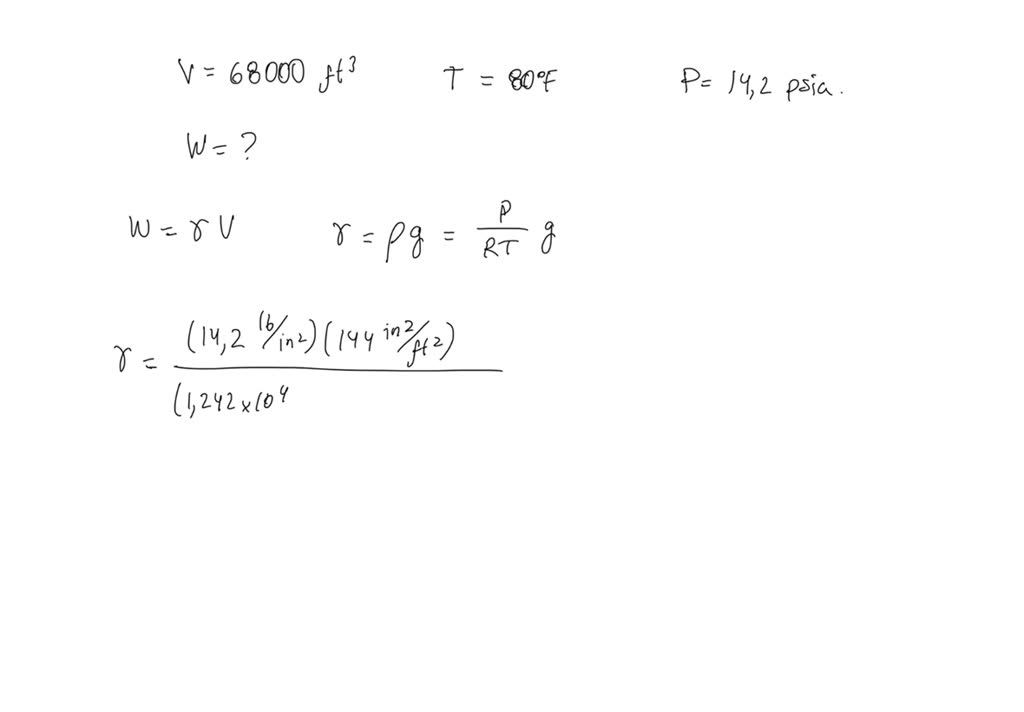 V = 68000 ft³ T = 80°F P = 14,2 psia.
W = ?
W = γV γ = ρg = P/RT g
γ = (14,2 lb/in²)(144 in²/ft²)
(1,242 x 10⁴